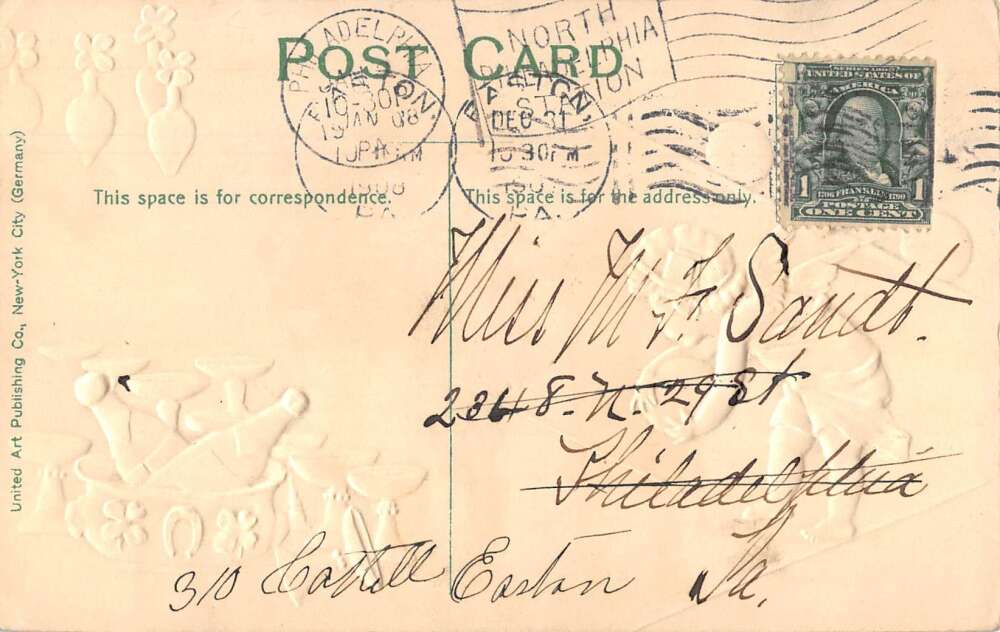 POST CARD
PHILADELPHIA
JAN
1908
EASTON,
10-30P
PA.
NORTH PHILADELPHIA
STATION
EASTON,
DEC 31
10 30PM
PA.
SERIES 1902
UNITED STATES OF AMERICA
1706 FRANKLIN 1790
1 POSTAGE 1
ONE CENT
This space is for correspondence.
This space is for the address only.
United Art Publishing Co., New-York City (Germany)
Miss M F Sandt.
2348 - N. 29 St
Philadelphia
310 Easton Pa.